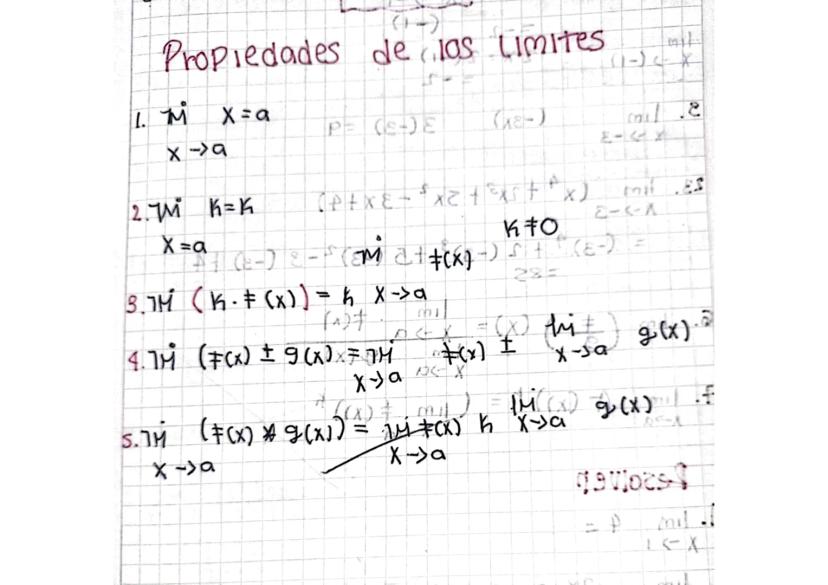 Propiedades de los Límites
1. lim x = a
x → a
2. lim k = k
x = a
k ≠ 0
lim f(x)
3. lim (k · f(x)) = k x → a
4. lim (f(x) ± g(x)) = lim f(x) ± lim g(x)
x → a x → a
5. lim (f(x) * g(x)) = lim f(x) * lim g(x)
x → a x → a x → a